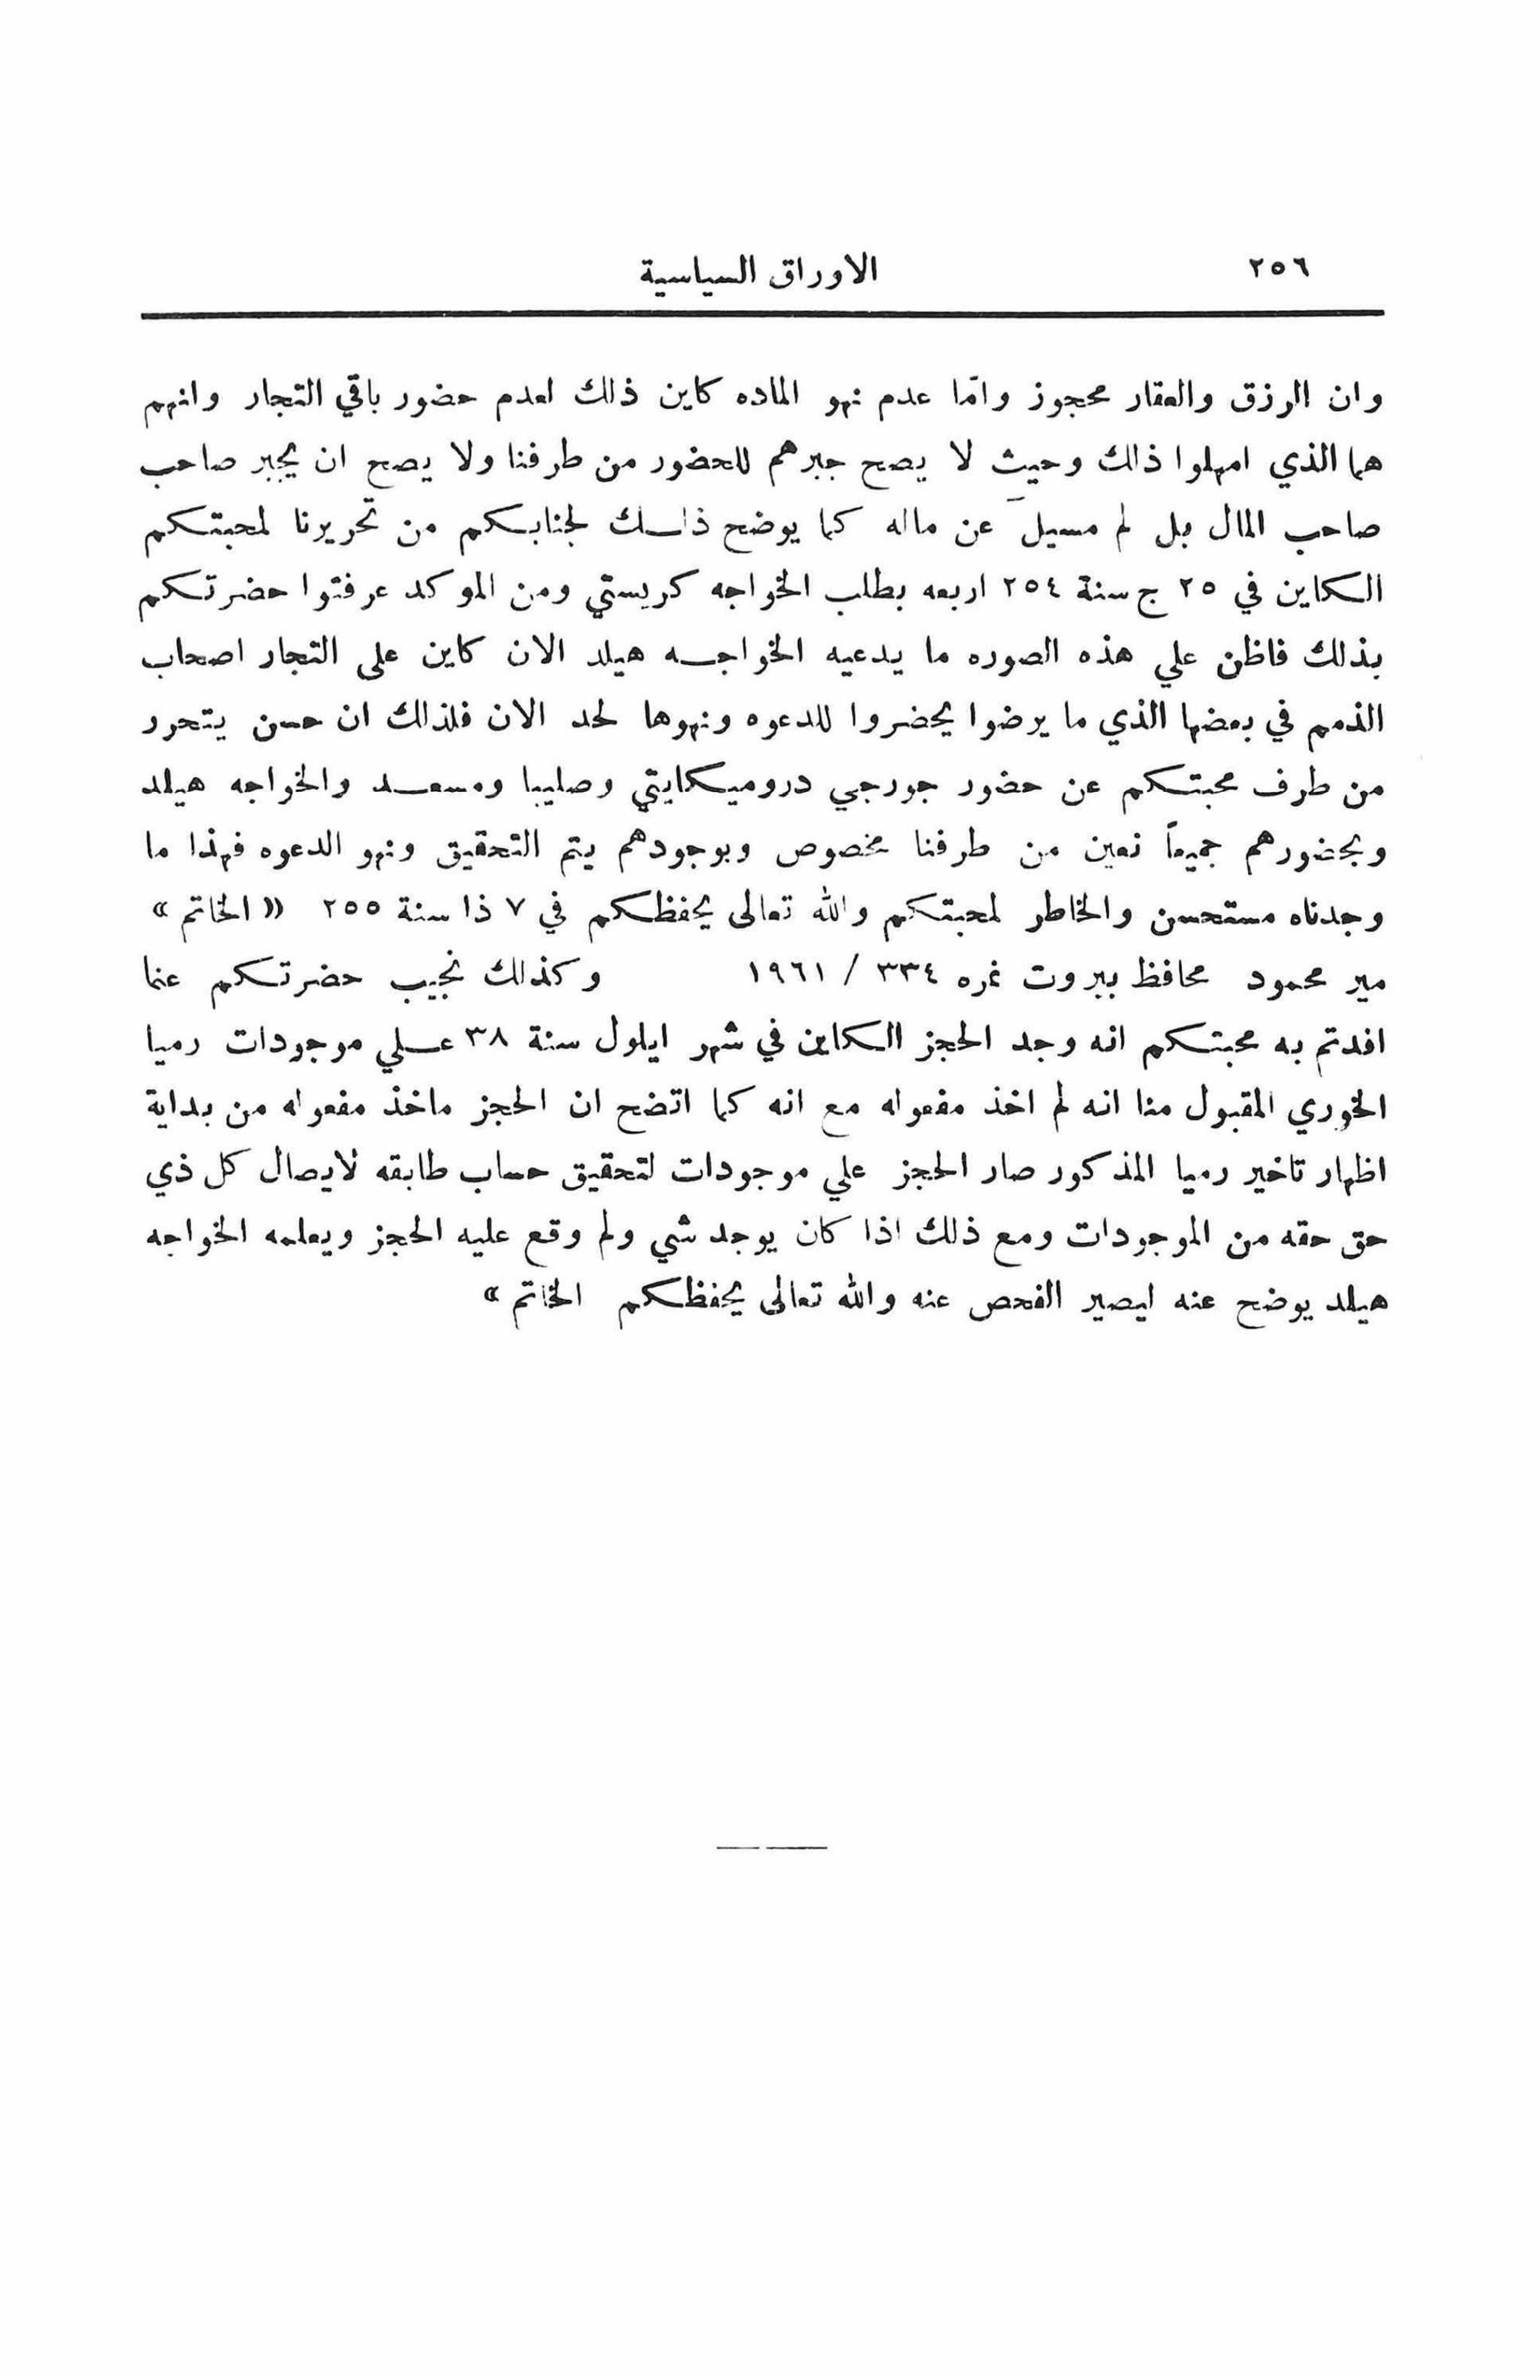 ٢٥٦ الاوراق السياسية
وان الرزق والعقار محجوز وامّا عدم نهو الماده كاين ذلك لعدم حضور باقي التجار وانهم
هما الذي امهلوا ذلك وحيث لا يصح جبرهم للحضور من طرفنا ولا يصح ان يجبر صاحب
صاحب المال بل لم مسيل عن ماله كما يوضح ذلك لجنابكم من تحريرنا لمحبتكم
الكاين في ٢٥ ج سنة ٢٥٤ اربعه بطلب الخواجه كريستي ومن الموكد عرفتوا حضرتكم
بذلك فاظن علي هذه الصوره ما يدعيه الخواجه هيلد الان كاين على التجار اصحاب
الذمم في بعضها الذي ما يرضوا يحضروا للدعوه ونهوها لحد الان فلذلك ان حسن يتحرر
من طرف محبتكم عن حضور جورجي دروميكايتي وصليبا ومسعد والخواجه هيلد
وبحضورهم جميعاً نعين من طرفنا مخصوص وبوجودهم يتم التحقيق ونهو الدعوه فهذا ما
وجدناه مستحسن والخاطر لمحبتكم والله تعالى يحفظكم في ٧ ذا سنة ٢٥٥ « الخاتم »
مير محمود محافظ بيروت نمره ٣٣٤ / ١٩٦١ وكذلك نجيب حضرتكم عنما
افدتم به محبتكم انه وجد الحجز الكاين في شهر ايلول سنة ٣٨ علي موجودات رميا
الخوري المقبول منا انه لم اخذ مفعوله مع انه كما اتضح ان الحجز ماخذ مفعوله من بداية
اظهار تاخير رميا المذكور صار الحجز علي موجودات لتحقيق حساب طابقه لايصال كل ذي
حق حقه من الموجودات ومع ذلك اذا كان يوجد شي ولم وقع عليه الحجز ويعلمه الخواجه
هيلد يوضح عنه ليصير الفحص عنه والله تعالى يحفظكم الخاتم »